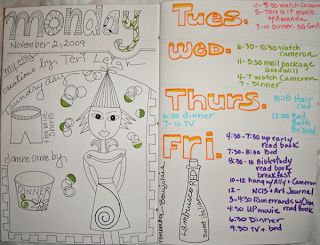 monday
November 2, 2009
creations by Teri
laundry day
boxer
shorts
came by
DINNER
Tues.
10 - 5:30 watch Cameron
5 - This is it movie
w/ Amanda
7-10 Dinner - BB Grill
Wed.
6:30 - 10:30 watch
Cameron
11 - 5:30 mail package
Goodwill
4-7 watch Cameron
7 - Dinner
Thurs.
10:15 Hair
Cut
12:30 Bed
Bath
Beyond
6:30 dinner
7-10 TV
Fri.
4:30 - 7:30 up early
read book
7:30 - 8:30 bed
8:30 - 10 Bible study
read book
breakfast
10-12 hang w/ Ally + Cameron
12 - NCIS + Art Journal
3 - 4:30 Run errands w/
4:30 UP movie read book
6:30 Dinner
9:30 TV + bed